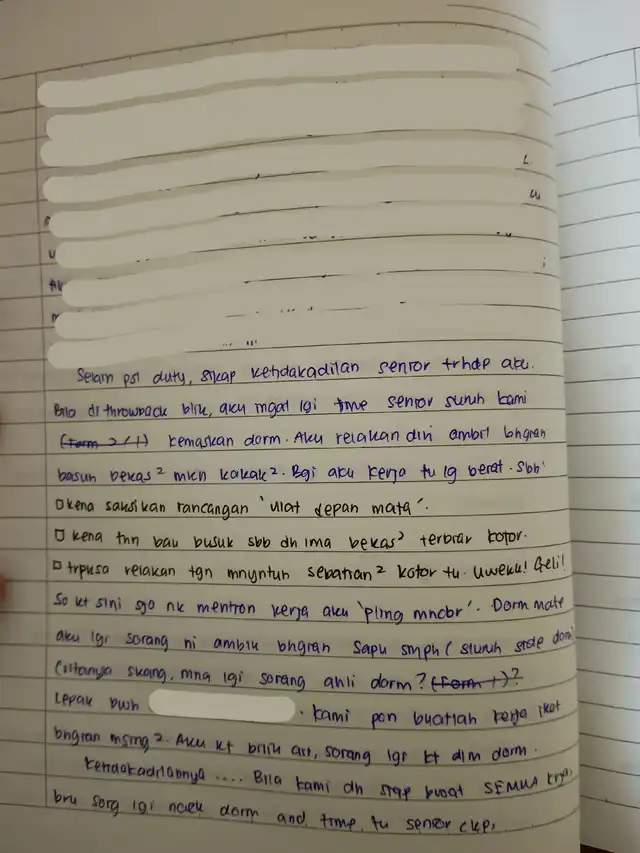 Selain psl duty, sikap ketidakadilan senior trhdp aku.
Bila di throwback blik, aku ingat lgi time senior suruh kami
(form 2/1) kemaskan dorm. Aku relakan diri ambil bhgian
basuh bekas² mkn kakak². Bgi aku kerja tu lg berat. Sbb'
kena saksikan rancangan 'ulat depan mata'.
kena thn bau busuk sbb dh lma bekas² terbiar kotor.
trpksa relakan tgn mnyntuh sebatian² kotor tu. Uweku! Geli!
So kt sini sgo nk mention kerja aku 'pling mncbr'. Dorm mate
aku lgi sorang ni ambik bhgian sapu smph (sluruh side dorm)
Critanya skang, mna lgi sorang ahli dorm? (form 1)?
Lepak bwh . Kami pon buatlah kerja ikot
bhgian msing². Aku kt bilik air, sorang lgi kt dlm dorm.
Ketidakadilannya .... Bila kami dh siap buat SEMUA krja,
bru sorg lgi naik dorm and time tu senior ckp,